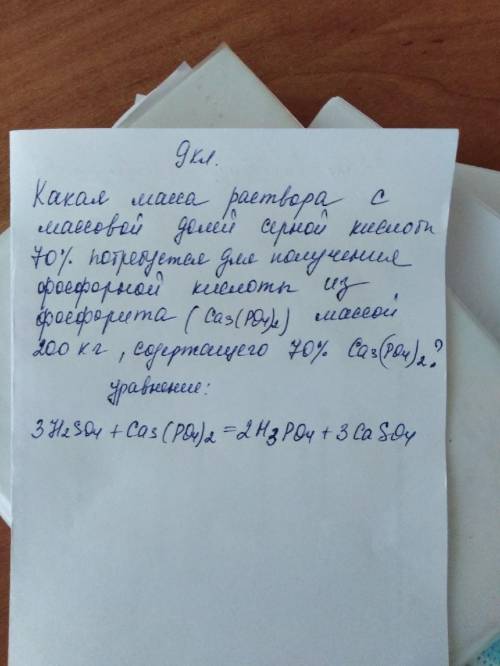 9 кл.
Какая масса раствора с
массовой долей серной кислоты
70% потребуется для получения
фосфорной кислоты из
фосфорита (Ca3(PO4)2) массой
200 кг, содержащего 70% Ca3(PO4)2?
уравнение:
3H2SO4 + Ca3(PO4)2 = 2H3PO4 + 3CaSO4